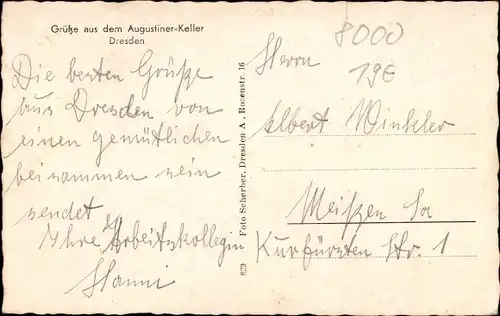 Grüße aus dem Augustiner-Keller
Dresden
Die besten Grüße
aus Dresden von
einen gemütlichen
beisammen sein
sendet
Ihre Arbeitskollegin
Hanni
829 Foto Scherber, Dresden A., Rosenstr. 16
8000
19E
Herrn
Albert Winkler
Meißen Sa
Kurfürsten Str. 1